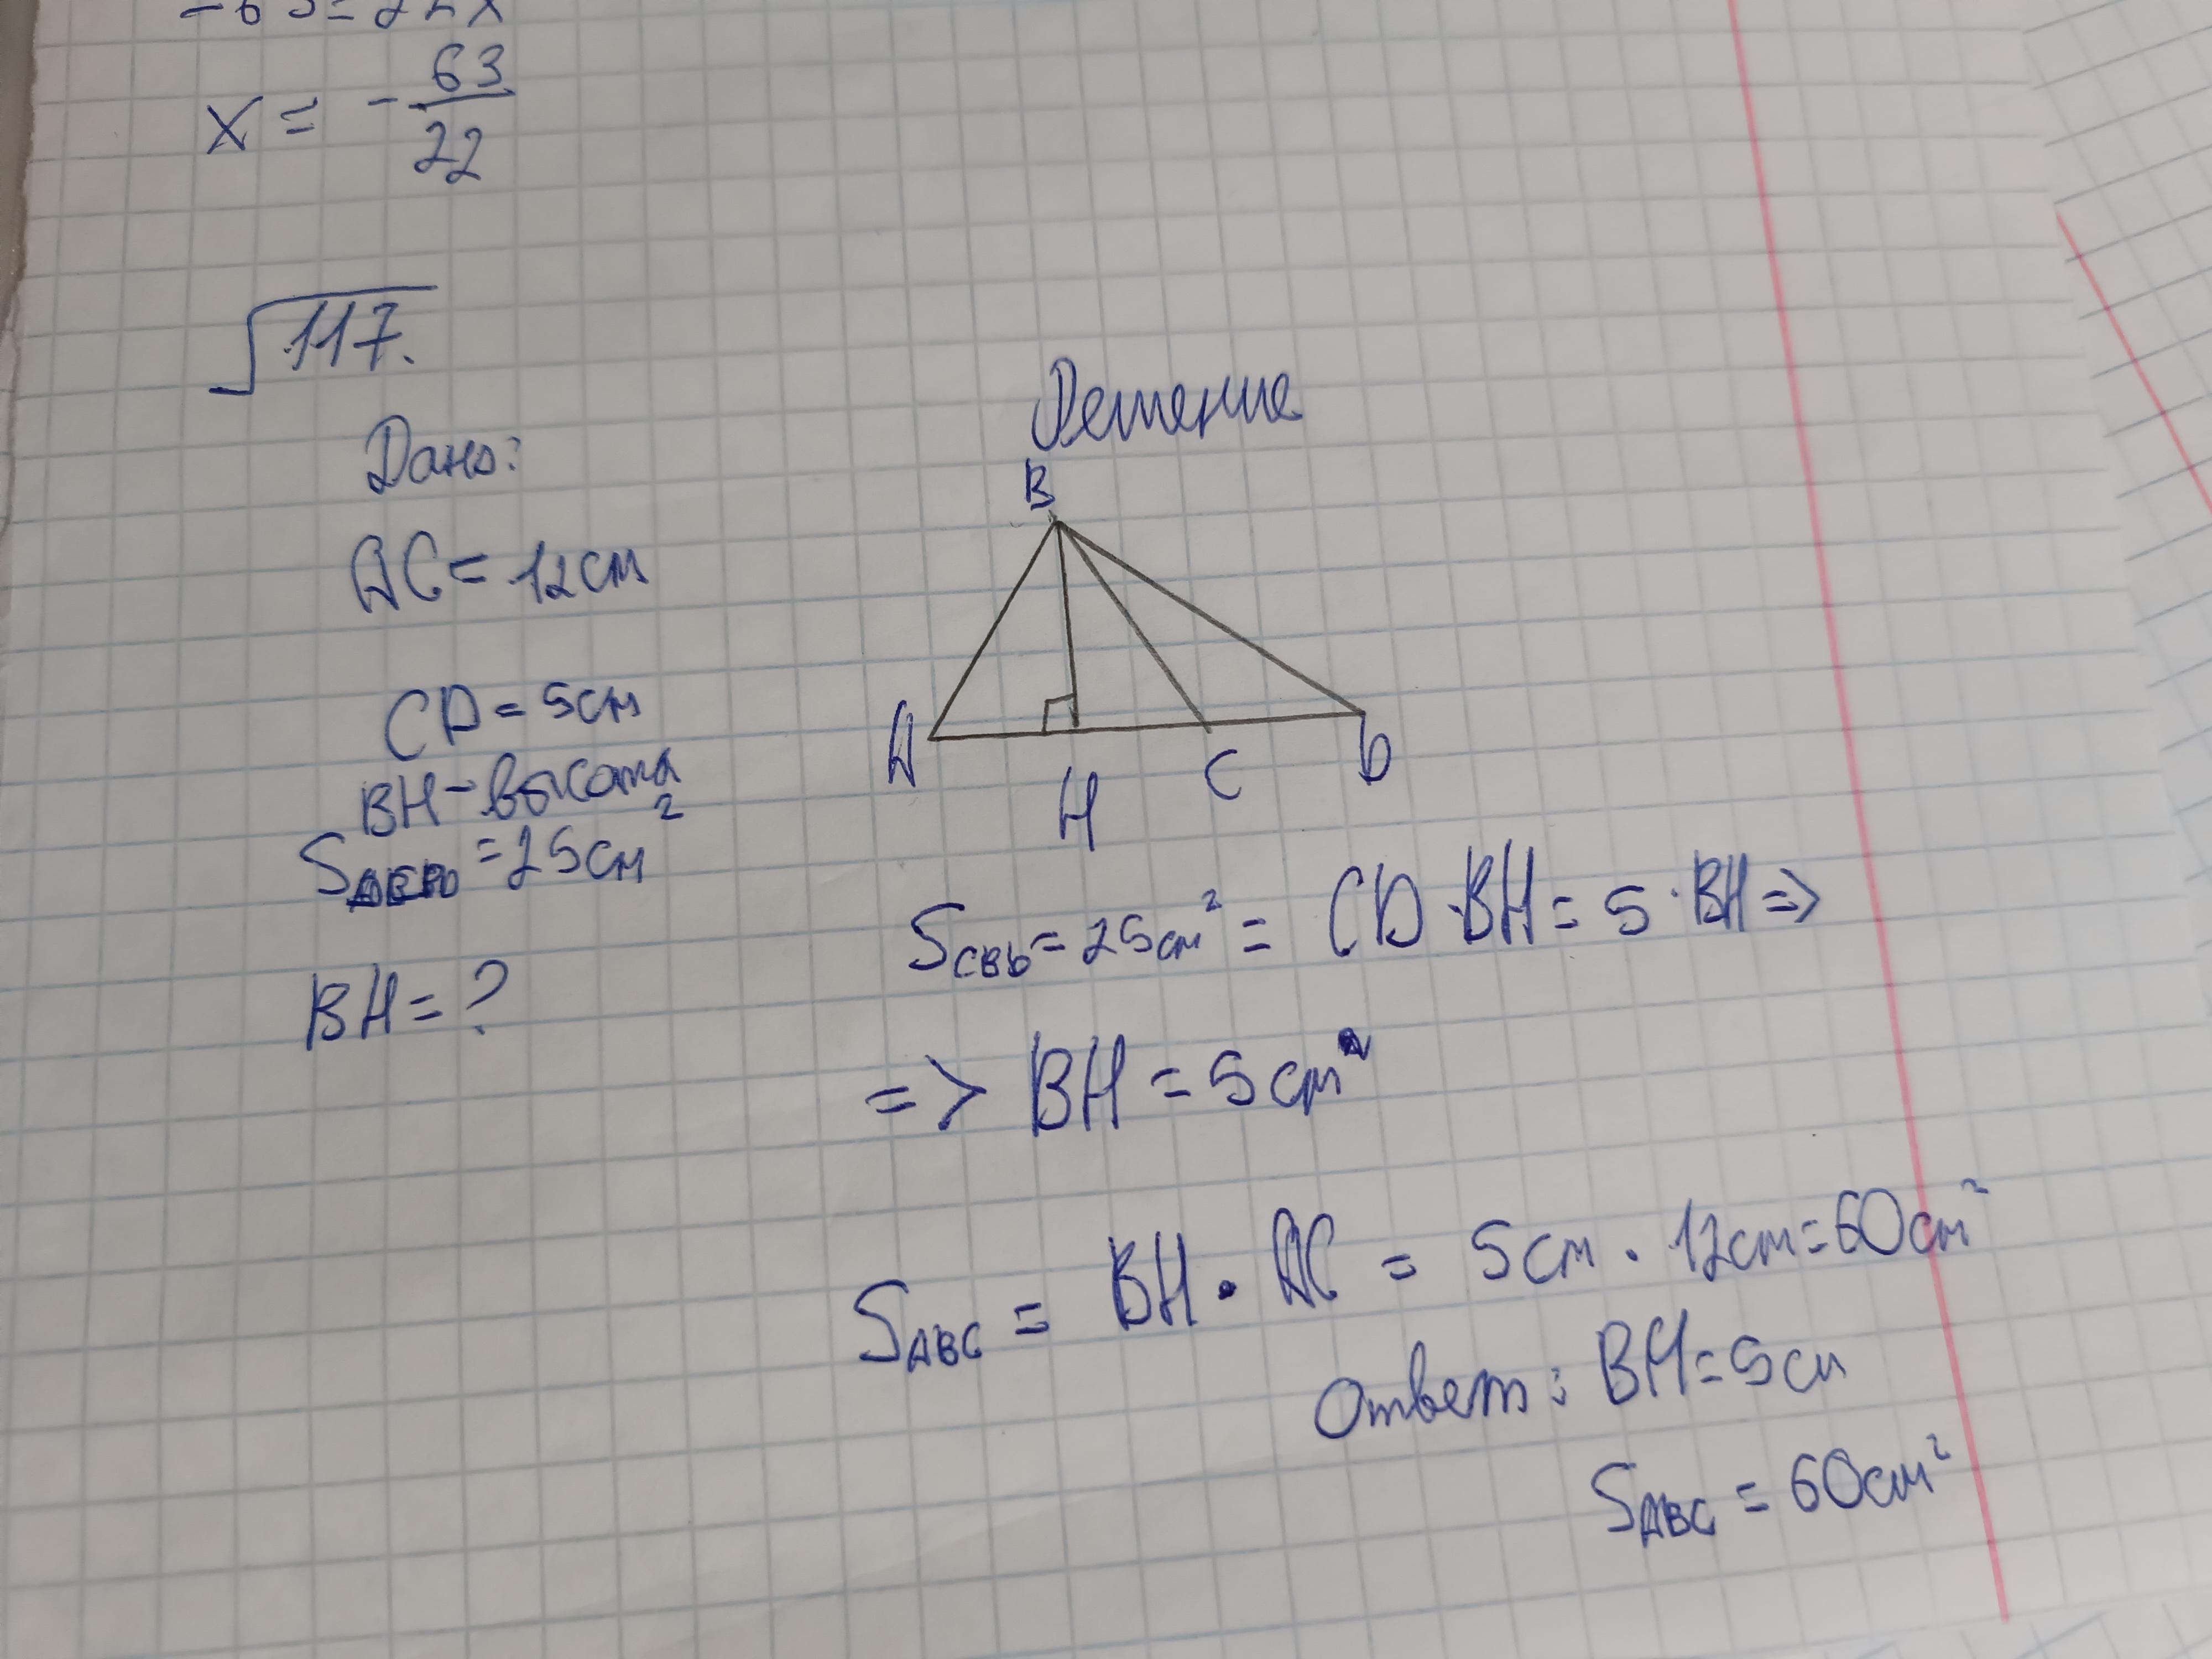 x = - 63/22
117.
Дано:
AC = 12см
CD = 5см
BH - высота
= 25см²
BH = ?
Решение
B
A
H
C
D
= 25см² = CD · BH = 5 · BH =>
=> BH = 5см
S ABC = BH · AC = 5см · 12см = 60см²
Ответ: BH = 5см
S ABC = 60см²